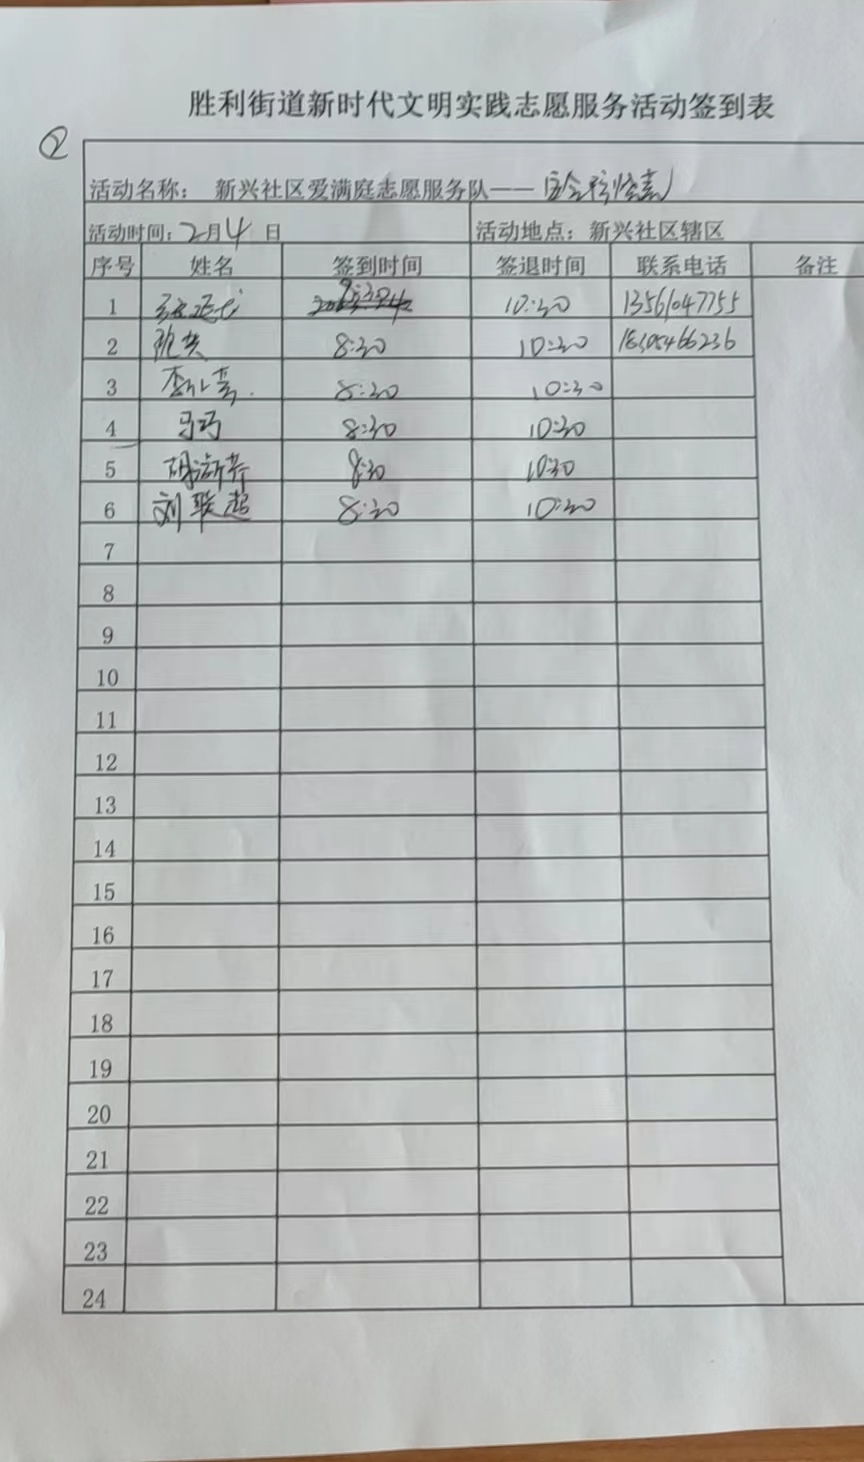 胜利街道新时代文明实践志愿服务活动签到表
②
活动名称： 新兴社区爱满庭志愿服务队——
活动时间：2月4日 活动地点：新兴社区辖区
序号 姓名 签到时间 签退时间 联系电话 备注
1 8:30 10:30 13561047755
2 8:30 10:30
3 8:30 10:30
4 马巧 8:30 10:30
5 8:30 10:30
6 刘联超 8:30 10:30
7
8
9
10
11
12
13
14
15
16
17
18
19
20
21
22
23
24